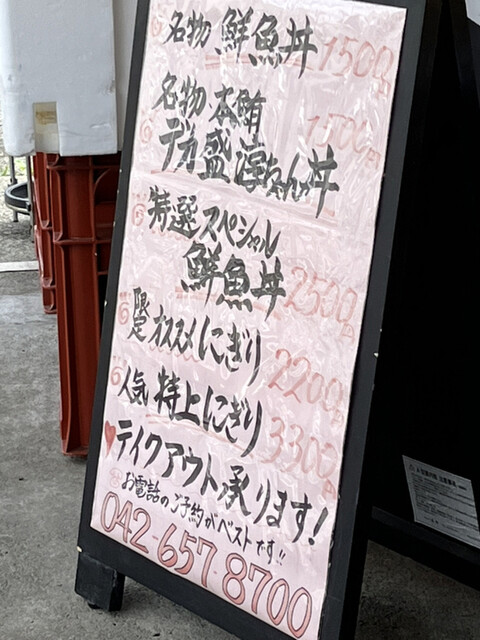 名物 鮮魚丼 1500円
名物 本鮪
デカ盛 淳ちゃん丼 1500円
特選 スペシャル
鮮魚丼 2500円
限定 オススメにぎり 2200円
人気 特上にぎり 3300円
♥テイクアウト承ります!
お電話のご予約がベストです!!
042-657-8700